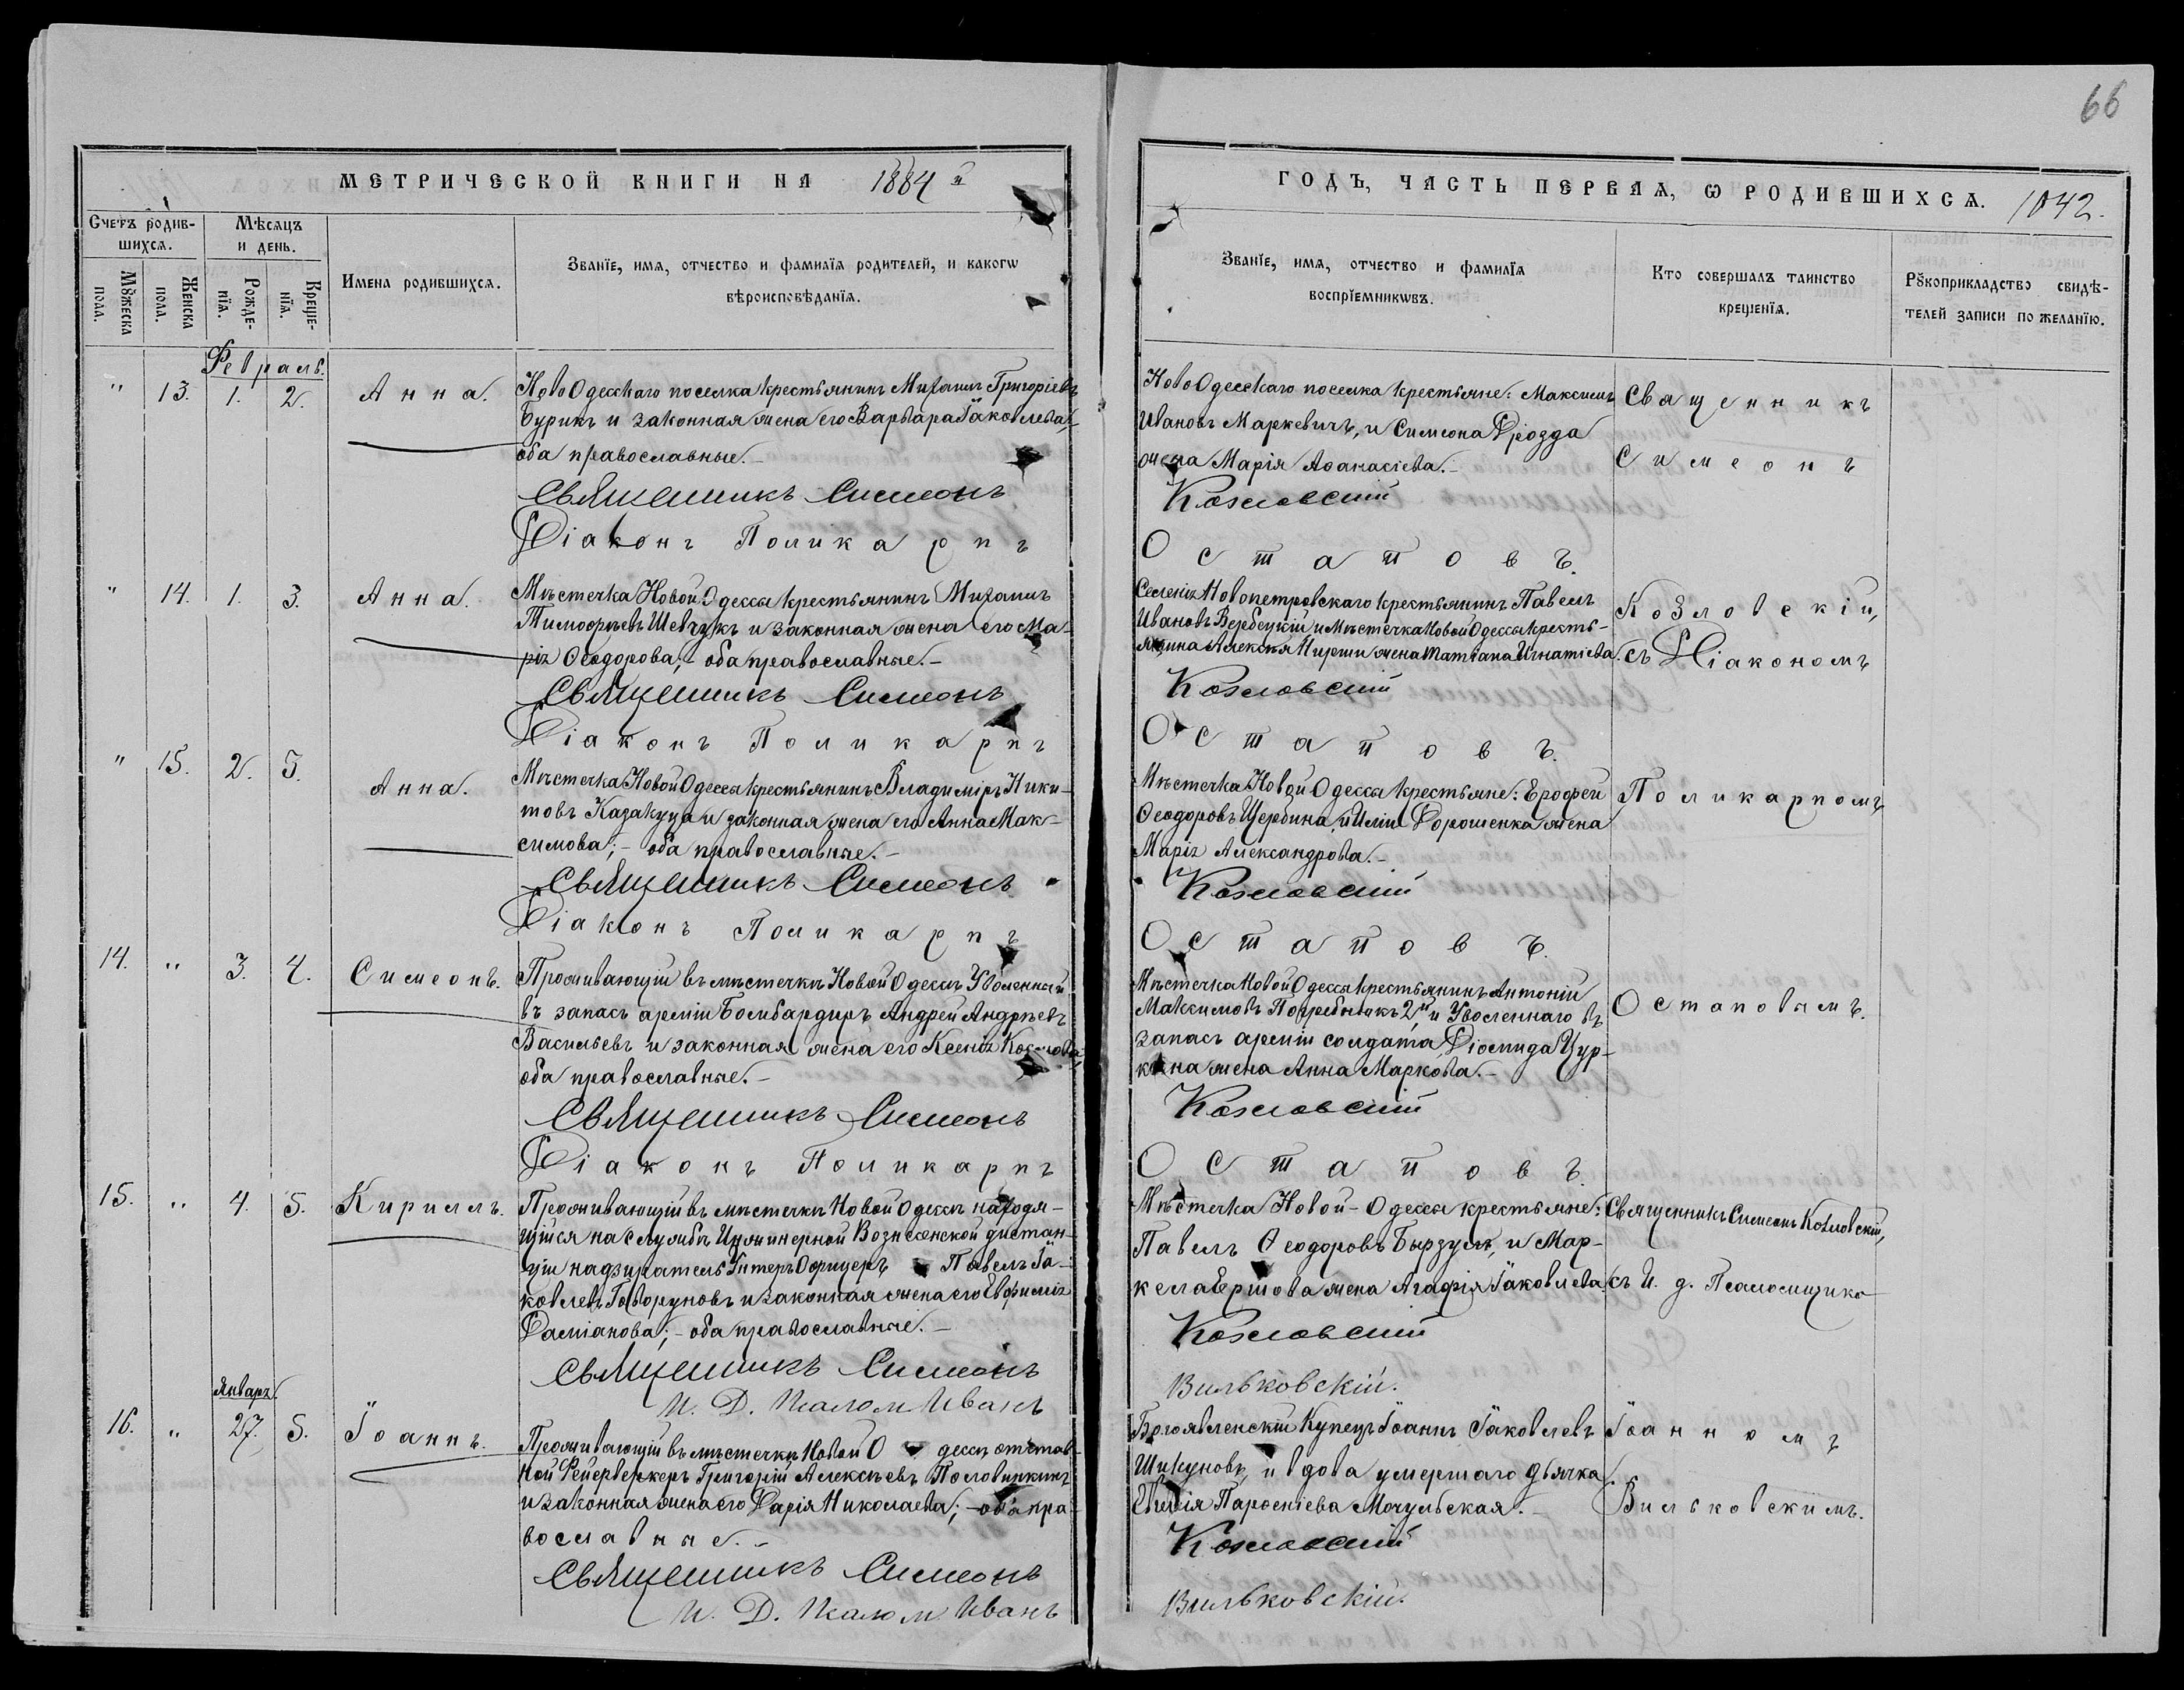 66
МЕТРИЧЕСКОЙ КНИГИ НА 1884 й
ГОДЪ, ЧАСТЬ ПЕРВАЯ, Ѡ РОДИВШИХСѦ. 1042.
Счетъ родив-
шихсѧ.
Мꙋжеска
пола.
Женска
пола.
Мѣсѧцъ
и день.
Рожде-
нїѧ.
Креще-
нїѧ.
Имена родившихсѧ.
Званїе, имѧ, отчество и фамилїѧ родителей, и какогѡ
вѣроисповѣданїѧ.
Званїе, имѧ, отчество и фамилїѧ
воспрїемникѡвъ.
Кто совершалъ таинство
крещенїѧ.
Рꙋкоприкладство свидѣ-
телей записи по желанїю.
Февраль.
" 13. 1. 2. Анна.
НовоОдесскаго поселка крестьянинъ Михаилъ Григоріевъ
Бурикъ и законная жена его Варвара Іаковлева,
оба православные.-
Священникъ Симеонъ
Діаконъ Поликарпъ
НовоОдесскаго поселка крестьяне: Максимъ
Ивановъ Маркевичъ, и Симеона Дрозда
жена Марія Аѳанасіева.-
Козловскій
Остаповъ.
Священникъ
Симеонъ
" 14. 1. 3. Анна.
Мѣстечка Новой Одессы крестьянинъ Михаилъ
Тимоѳеевъ Шевчукъ и законная жена его Ма-
рія Ѳеодорова;- оба православные.-
Священникъ Симеонъ
Діаконъ Поликарпъ
Селенія Новопетровскаго крестьянинъ Павелъ
Ивановъ Вербецкій и Мѣстечка Новой Одессы кресть-
янина Алексѣя Нирши жена Татіана Игнатіева.
Козловскій
Остаповъ.
Козловскій,
съ Діакономъ
" 15. 2. 5. Анна.
Мѣстечка Новой Одессы крестьянинъ Владиміръ Ники-
товъ Казакуца и законная жена его Анна Мак-
симова;- оба православные.-
Священникъ Симеонъ
Діаконъ Поликарпъ
Мѣстечка Новой Одессы крестьяне: Ерофей
Ѳеодоровъ Щербина, и Иліи Дорошенка жена
Марія Александрова.-
Козловскій
Остаповъ.
Поликарпомъ
14. " 3. 4. Симеонъ.
Проживающій въ мѣстечкѣ Новой Одессѣ Уволенный
въ запасъ арміи Бомбардиръ Андрей Андреевъ
Васильевъ и законная жена его Ксенія Космова,
оба православные.-
Священникъ Симеонъ
Діаконъ Поликарпъ
Мѣстечка Новой Одессы крестьянинъ Антоній
Максимовъ Погребнякъ 2й, и Уволеннаго въ
запасъ арміи солдата Діомида Цур-
кана жена Анна Маркова.-
Козловскій
Остаповъ.
Остаповымъ.
15. " 4. 5. Кириллъ.
Проживающій въ мѣстечкѣ Новой Одессѣ находя-
щійся на службѣ Инжинерной Вознесенской дистан-
ціи надзиратель Унтеръ Офицеръ Павелъ Іа-
ковлевъ Говоруновъ и законная жена его Евфимія
Даміанова;- оба православные.-
Священникъ Симеонъ
И. Д. Псалом Иванъ
Мѣстечка Новой-Одессы крестьяне:
Павелъ Ѳеодоровъ Бырзулъ, и Мар-
кела Ершова жена Агафія Іаковлева.
Козловскій
Вильковскій.
Священникъ Симеонъ Козловскій,
съ И. д. Псаломщика
Январь.
16. " 27. 5. Іоаннъ.
Проживающій въ мѣстечкѣ Новой Одессѣ, отстав-
ной Фейерверкеръ Григорій Алексѣевъ Половинкинъ
и законная жена его Дарія Николаева;- оба пра-
вославные.-
Священникъ Симеонъ
И. Д. Псалом Иванъ
Богоявленскій Купецъ Іоаннъ Іаковлевъ
Шикуновъ, и вдова умершаго дьячка
Евгенія Парѳеніева Мочульская.-
Козловскій
Вильковскій.
Іоанномъ
Вильковскимъ.